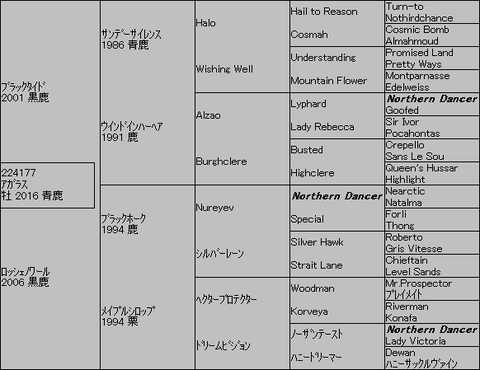 ブラックタイド
2001 黒鹿
224177
アガラス
牡 2016 青鹿
ロッシェノワール
2006 黒鹿
サンデーサイレンス
1986 青鹿
ウインドインハーヘア
1991 鹿
ブラックホーク
1994 鹿
メイプルシロップ
1994 栗
Halo
Wishing Well
Alzao
Burghclere
Nureyev
シルバーレーン
ヘクタープロテクター
ドリームビジョン
Hail to Reason
Cosmah
Understanding
Mountain Flower
Lyphard
Lady Rebecca
Busted
Highclere
Northern Dancer
Special
Silver Hawk
Strait Lane
Woodman
Korveya
ノーザンテースト
ハニードリーマー
Turn-to
Nothirdchance
Cosmic Bomb
Almahmoud
Promised Land
Pretty Ways
Montparnasse
Edelweiss
Northern Dancer
Goofed
Sir Ivor
Pocahontas
Crepello
Sans Le Sou
Queen's Hussar
Highlight
Nearctic
Natalma
Forli
Thong
Roberto
Gris Vitesse
Chieftain
Level Sands
Mr.Prospector
プレイメイト
Riverman
Konafa
Northern Dancer
Lady Victoria
Dewan
ハニーサックルヴァイン